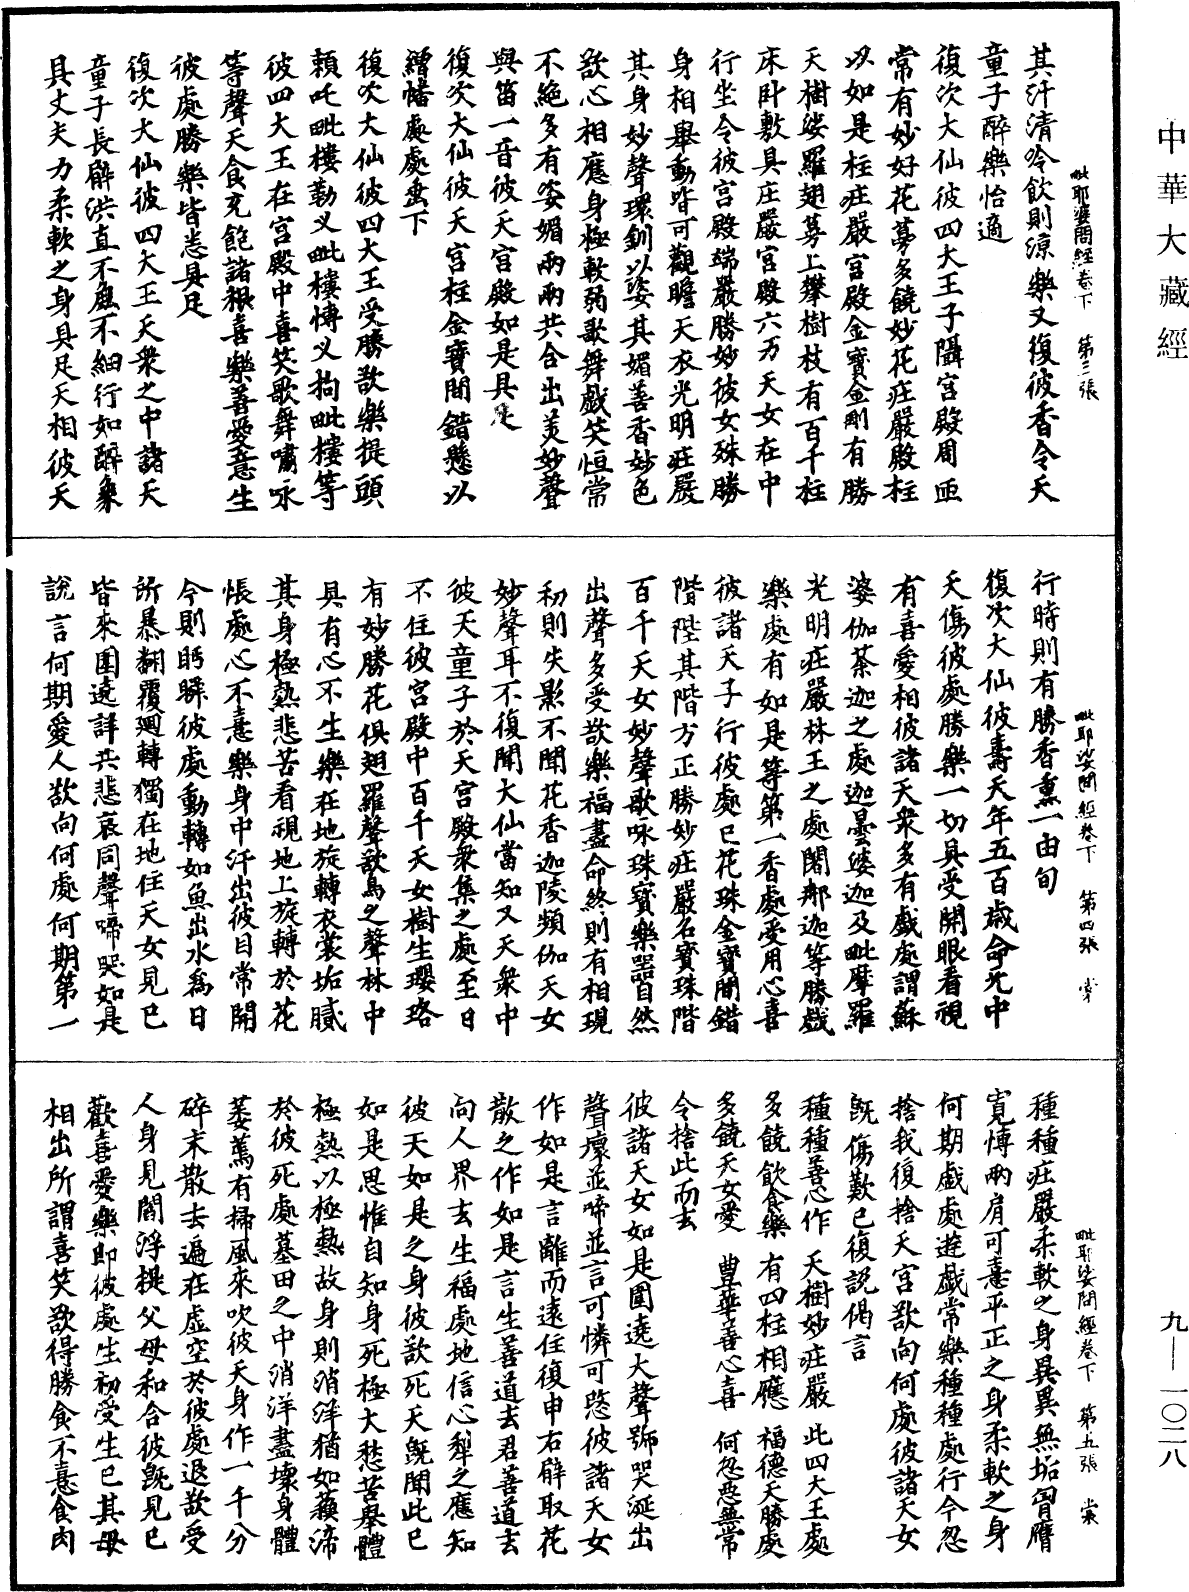 中華大藏經
毗耶婆問經卷下　第三張
其汗清冷飲則涼樂又復彼香令天
童子醉樂怡適
復次大仙彼四大王子隔宮殿周匝
常有妙好花蔓多饒妙花莊嚴殿柱
以如是柱莊嚴宮殿金寶金剛有勝
天樹娑羅翅蔓上攀樹枝有百千柱
床卧敷具庄嚴宮殿六万天女在中
行坐令彼宮殿端嚴勝妙彼女殊勝
身相舉動皆可觀瞻天衣光明莊嚴
其身妙聲環釧以姿其媚善香妙色
欲心相應身極軟弱歌舞戲笑恒常
不絕多有姿媚兩兩共合出美妙聲
與笛一音彼天宮殿如是具足
復次大仙彼天宮柱金寶間錯懸以
繒幡處處垂下
復次大仙彼四大王受勝欲樂提頭
頼吒毗樓勒叉毗樓博叉拘毗樓等
彼四大王在宮殿中喜笑歌舞嘯咏
等聲天食充飽諸根喜樂善愛意生
彼處勝樂皆悉具足
復次大仙彼四大王天衆之中諸天
童子長臂洪直不麁不細行如醉象
具丈夫力柔軟之身具足天相彼天
毗耶娑問經卷下　第四張
行時則有勝香熏一由旬
復次大仙彼壽天年五百歲命允中
夭傷彼處勝樂一切具受開眼看視
有喜愛相彼諸天衆多有戲處謂蘇
婆伽茶迦之處迦曇婆迦及毗摩羅
光明莊嚴林王之處闍那迦等勝戲
樂處有如是等第一香處受用心喜
彼諸天子行彼處已花珠金寶間錯
階陛其階方正勝妙莊嚴石寶珠階
百千天女妙聲歌咏珠寶樂器自然
出聲多受欲樂福盡命終則有相現
初則失影不聞花香迦陵頻伽天女
妙聲耳不復聞大仙當知又天衆中
彼天童子於天宮殿衆集之處至日
不住彼宮殿中百千天女樹生瓔珞
有妙勝花俱翅羅聲欲鳥之聲林中
具有心不生樂在地旋轉衣裳垢膩
其身極熱悲苦看視地上旋轉於花
悵處心不憙樂身中汗出彼目常開
今則眄瞬彼處動轉如魚出水為日
所暴翻覆迴轉獨在地住天女見已
皆來圍遶詳共悲哀同聲啼哭如是
說言何期愛人欲向何處何期第一
毗耶娑問經卷下　第五張　棠
種種莊嚴柔軟之身異異無垢胷膺
寬博兩肩可憙平正之身柔軟之身
何期戲處遊戲常樂種種處行今忽
捨我復捨天宮欲向何處彼諸天女
既傷歎已復說偈言
種種善心作　天樹妙莊嚴　此四大王處
多饒飲食樂　有四柱相應　福德天勝處
多饒天女愛　豊華善心喜　何忽惡無常
令捨此而去
彼諸天女如是圍遶大聲號哭涎出
聲壞並啼並言可憐可愍彼諸天女
作如是言離而遠住復申右臂取花
散之作如是言生善道去君善道去
向人界去生福處地信心犁之應知
彼天如是之身彼欲死天既聞此已
如是思惟自知身死極大愁苦舉體
極熱以極熱故身則消洋猶如蘇渧
於彼死處墓田之中消洋盡壞身體
萎蔫有掃風來吹彼天身作一千分
碎末散去遍在虛空於彼處退欲受
人身見閻浮提父母和合彼既見已
歡喜愛樂即彼處生初受生已其母
相出所謂喜笑欲得勝食不憙食肉
九—一〇二八